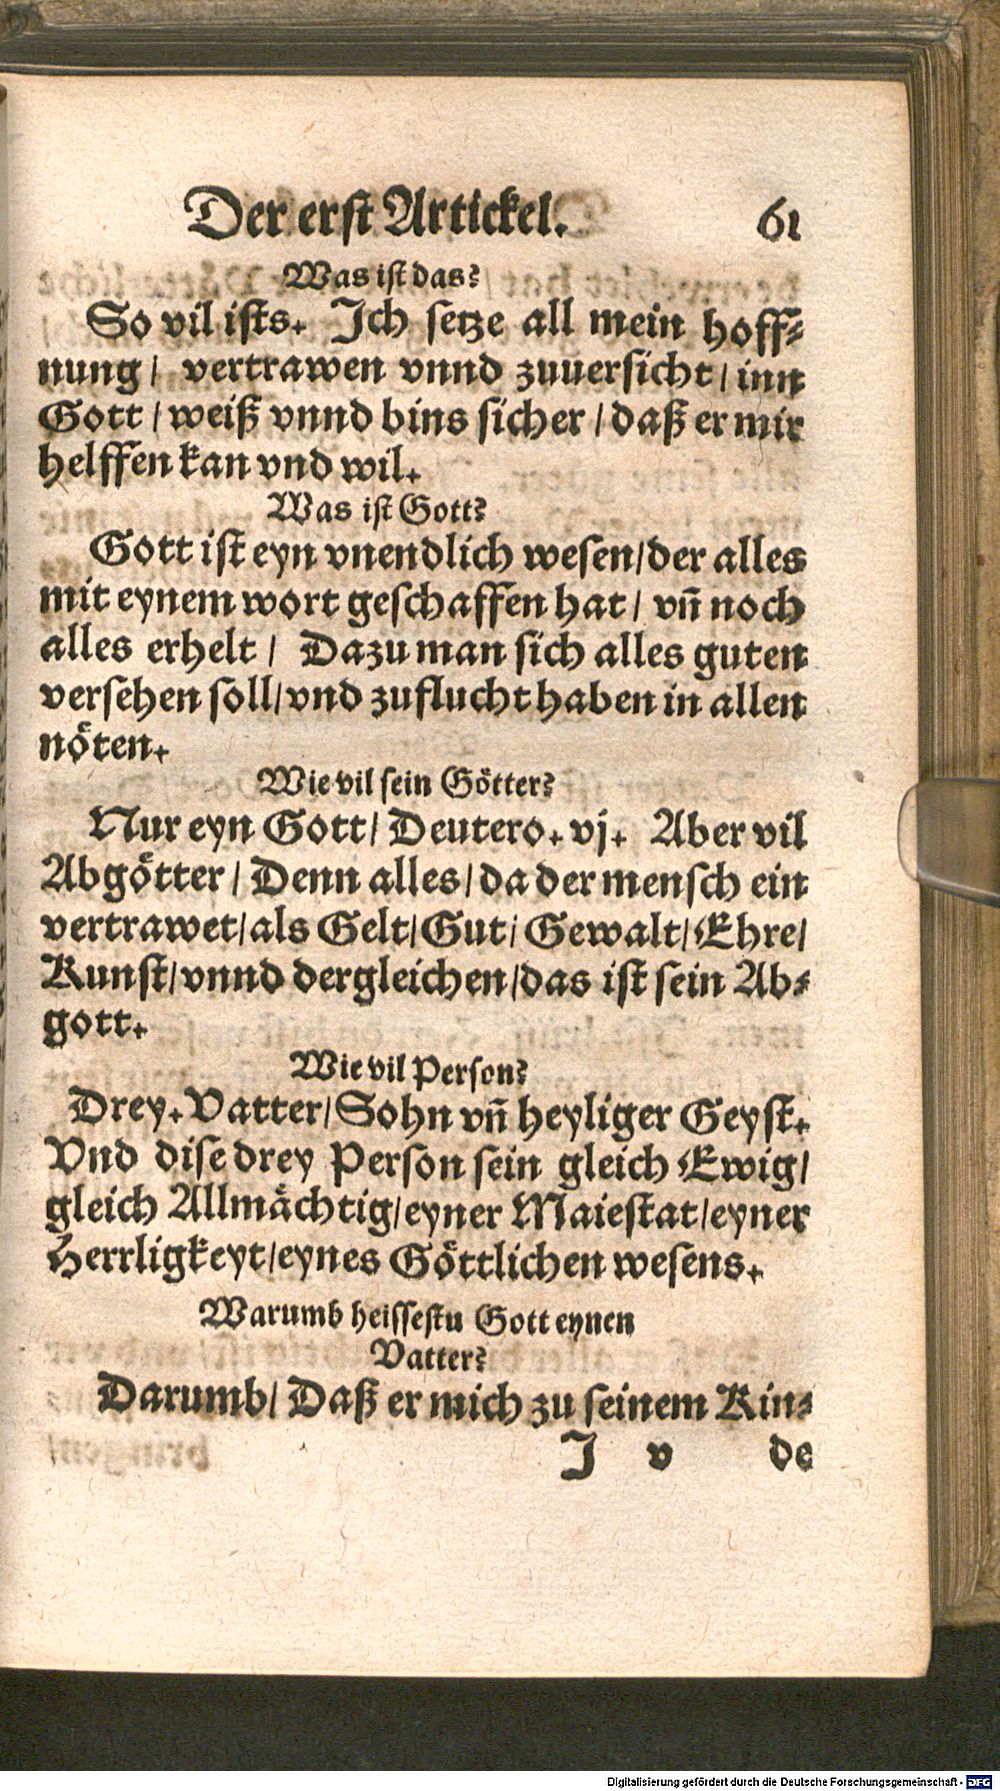 Der erst Artickel. 61
Was ist das?
So vil ists. Ich setze all mein hoff-
nung / vertrawen vnnd zuuersicht / inn
Gott / weiß vnnd bins sicher / daß er mir
helffen kan vnd wil.
Was ist Gott?
Gott ist eyn vnendlich wesen/der alles
mit eynem wort geschaffen hat / vñ noch
alles erhelt / Dazu man sich alles guten
versehen soll/vnd zuflucht haben in allen
nöten.
Wie vil sein Götter?
Nur eyn Gott/ Deutero. vj. Aber vil
Abgötter / Denn alles/da der mensch ein
vertrawet/als Gelt/Gut/ Gewalt/Ehre/
Kunst/vnnd dergleichen/das ist sein Ab-
gott.
Wie vil Person?
Drey. Vatter/Sohn vñ heyliger Geyst.
Vnd dise drey Person sein gleich Ewig/
gleich Allmächtig/eyner Maiestat/eyner
Herrligkeyt/eynes Göttlichen wesens.
Warumb heissestu Gott eynen
Vatter?
Darumb/ Daß er mich zu seinem Kin-
J v de
Digitalisierung gefördert durch die Deutsche Forschungsgemeinschaft - DFG